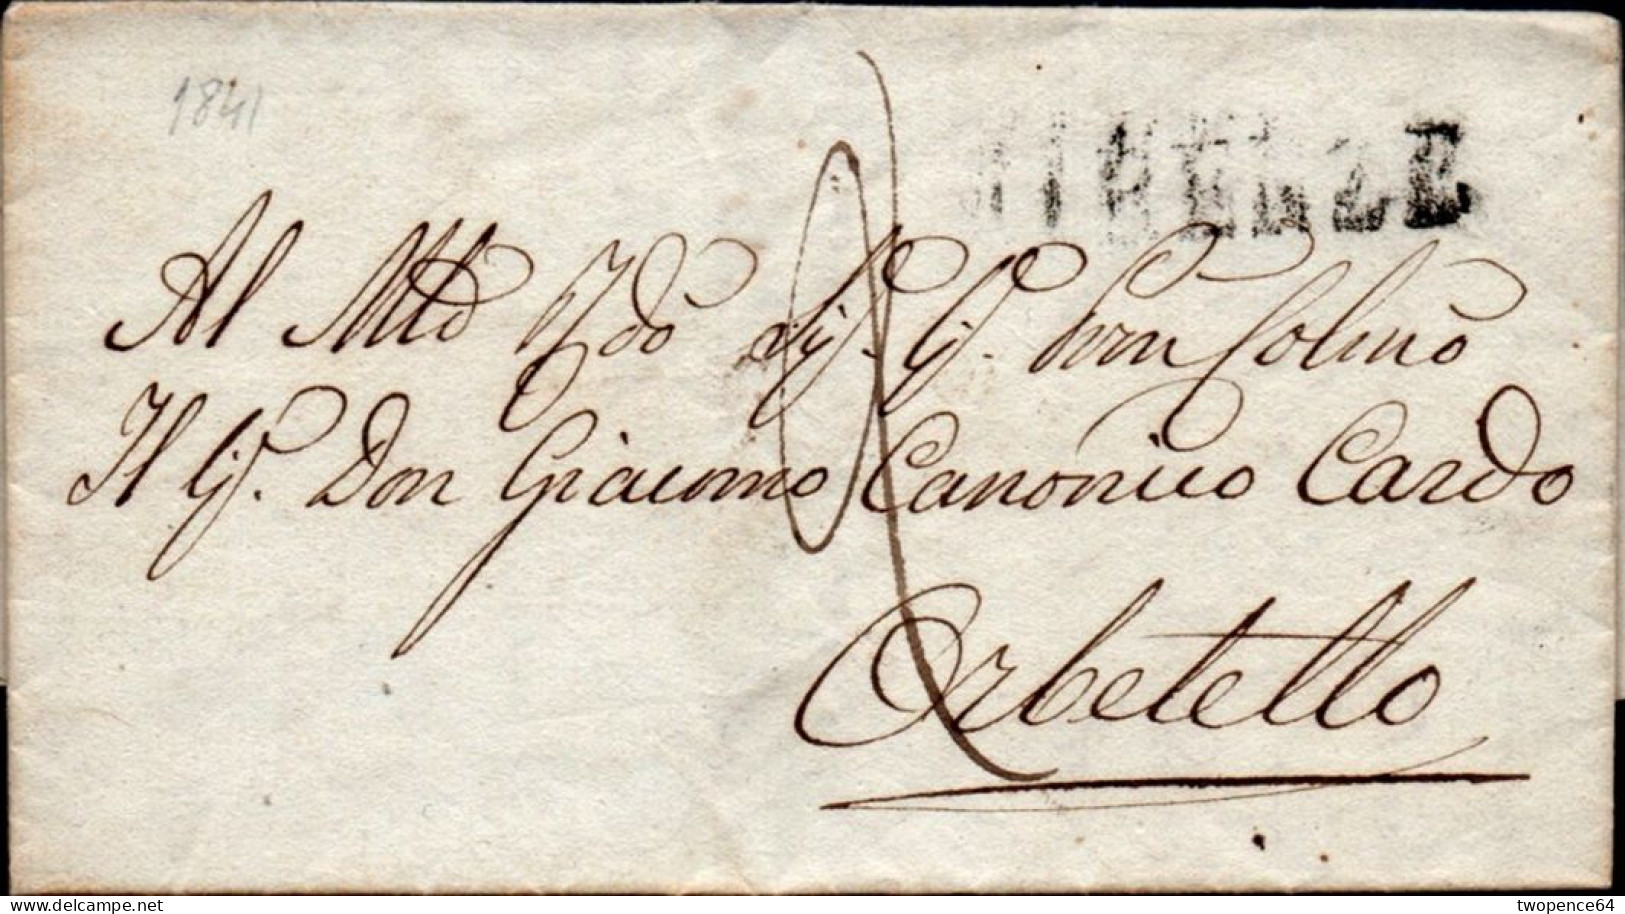 1841
FIRENZE
Al Mtto Rdo Sig. Sig. Pron Colmo
Il Sig. Don Giacomo Canonico Cardo
Orbetello
delcampe.net
twopence64